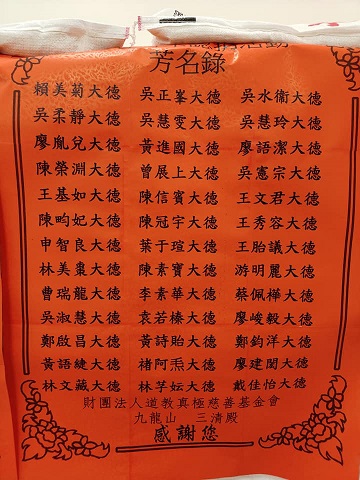 芳名錄
賴美菊大德 吳正峯大德 吳水衞大德
吳柔靜大德 吳慧雯大德 吳慧玲大德
廖胤兌大德 黃進國大德 廖語潔大德
陳榮淵大德 曾展上大德 吳憲宗大德
王基如大德 陳信賓大德 王文君大德
陳畇妃大德 陳冠宇大德 王秀容大德
申智良大德 葉于瑄大德 王胎議大德
林美棗大德 陳素寶大德 游明麗大德
曹瑞龍大德 李素華大德 蔡佩樺大德
吳淑慧大德 袁若榛大德 廖峻毅大德
鄭啟昌大德 黃詩貽大德 鄭鈞洋大德
黃語緁大德 褚阿𤆬大德 廖建閔大德
林文藏大德 林芓妘大德 戴佳怡大德
財團法人道教真極慈善基金會
九龍山 三清殿
感謝您